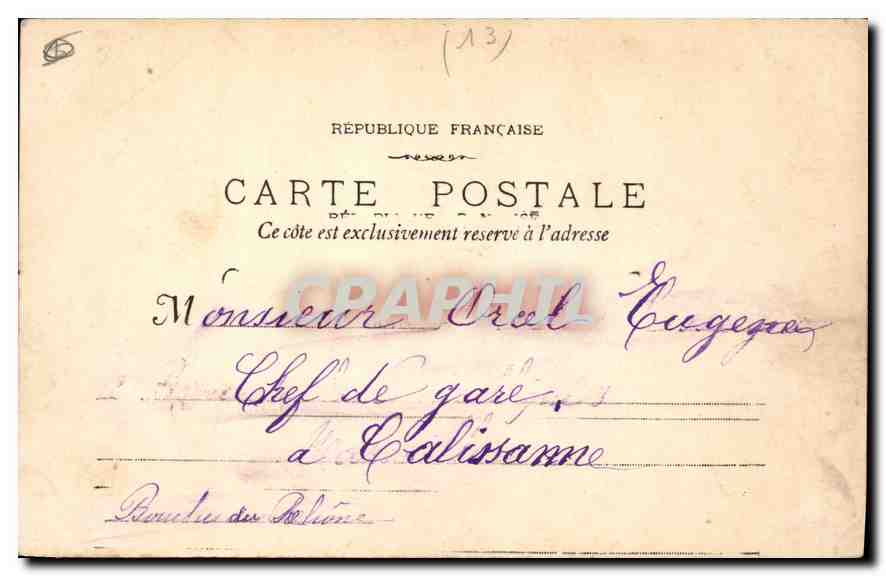 (13)
RÉPUBLIQUE FRANÇAISE
CARTE POSTALE
Ce côte est exclusivement reservé à l'adresse
CPAPHIL
Monsieur Orcel Eugene
Chef de gare,
à Calissanne
Bouches du Rhône